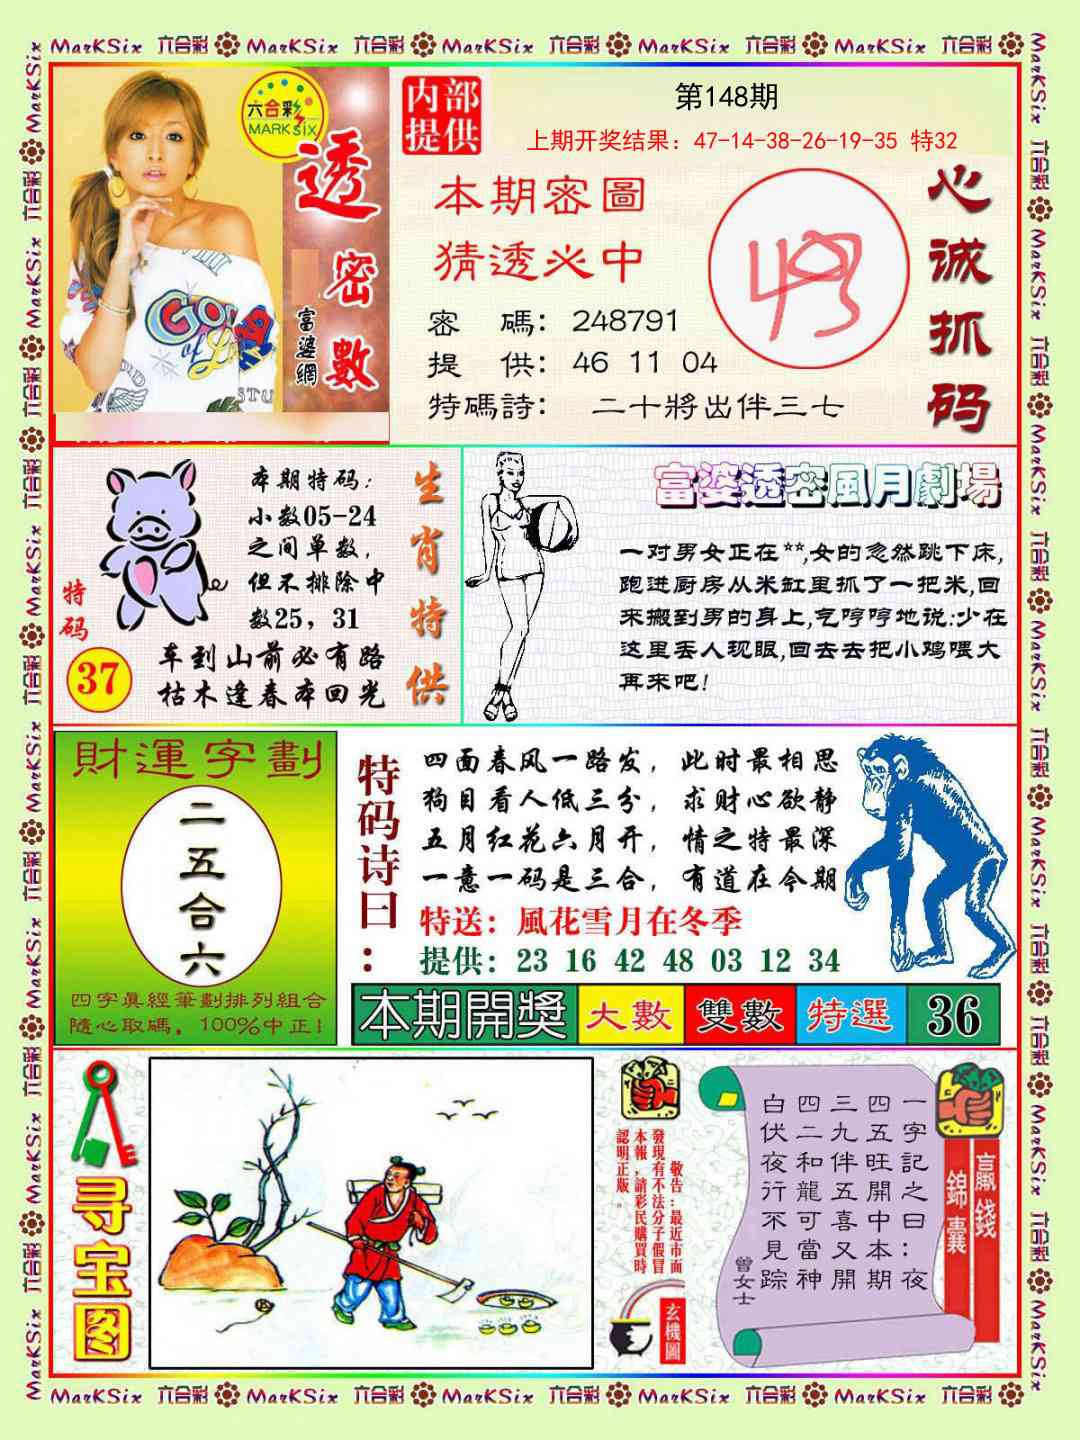 MarKSix 六合彩 MarKSix 六合彩 MarKSix 六合彩 MarKSix 六合彩 MarKSix 六合彩
六合彩
MARK SIX
透密數
富婆網
内部
提供
第148期
上期开奖结果：47-14-38-26-19-35 特32
本期密圖
猜透必中
密 碼：248791
提 供：46 11 04
特碼詩： 二十將出伴三七
心诚抓码
特码
37
本期特码：
小数05-24
之间单数，
但不排除中
数25，31
车到山前必有路
枯木逢春本回光
生肖特供
富婆透密風月劇場
一对男女正在**,女的忽然跳下床,
跑进厨房从米缸里抓了一把米,回
来搬到男的身上,气哼哼地说:少在
这里丢人现眼,回去去把小鸡喂大
再来吧!
財運字劃
二五合六
四字真經筆劃排列組合
隨心取碼，100%中正!
特码诗曰：
四面春风一路发，此时最相思
狗目看人低三分，求财心欲静
五月红花六月开，情之特最深
一意一码是三合，有道在今期
特送：風花雪月在冬季
提供：23 16 42 48 03 12 34
本期開獎 大數 雙數 特選 36
寻宝图
敬告：最近市面
發現有不法分子假冒
本報，請彩民購買時
認明正版。
玄機圖
一字記之曰：夜
四五旺開中本期
三九伴五喜又開
四二和龍可當神
白伏夜行不見踪
曾女士
贏錢
錦囊
MarKSix 六合彩 MarKSix 六合彩 MarKSix 六合彩 MarKSix 六合彩 MarKSix 六合彩